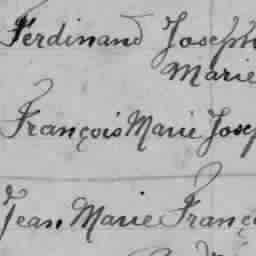 Ferdinand Joseph
Marie
François Marie Josep
Jean Marie Franç